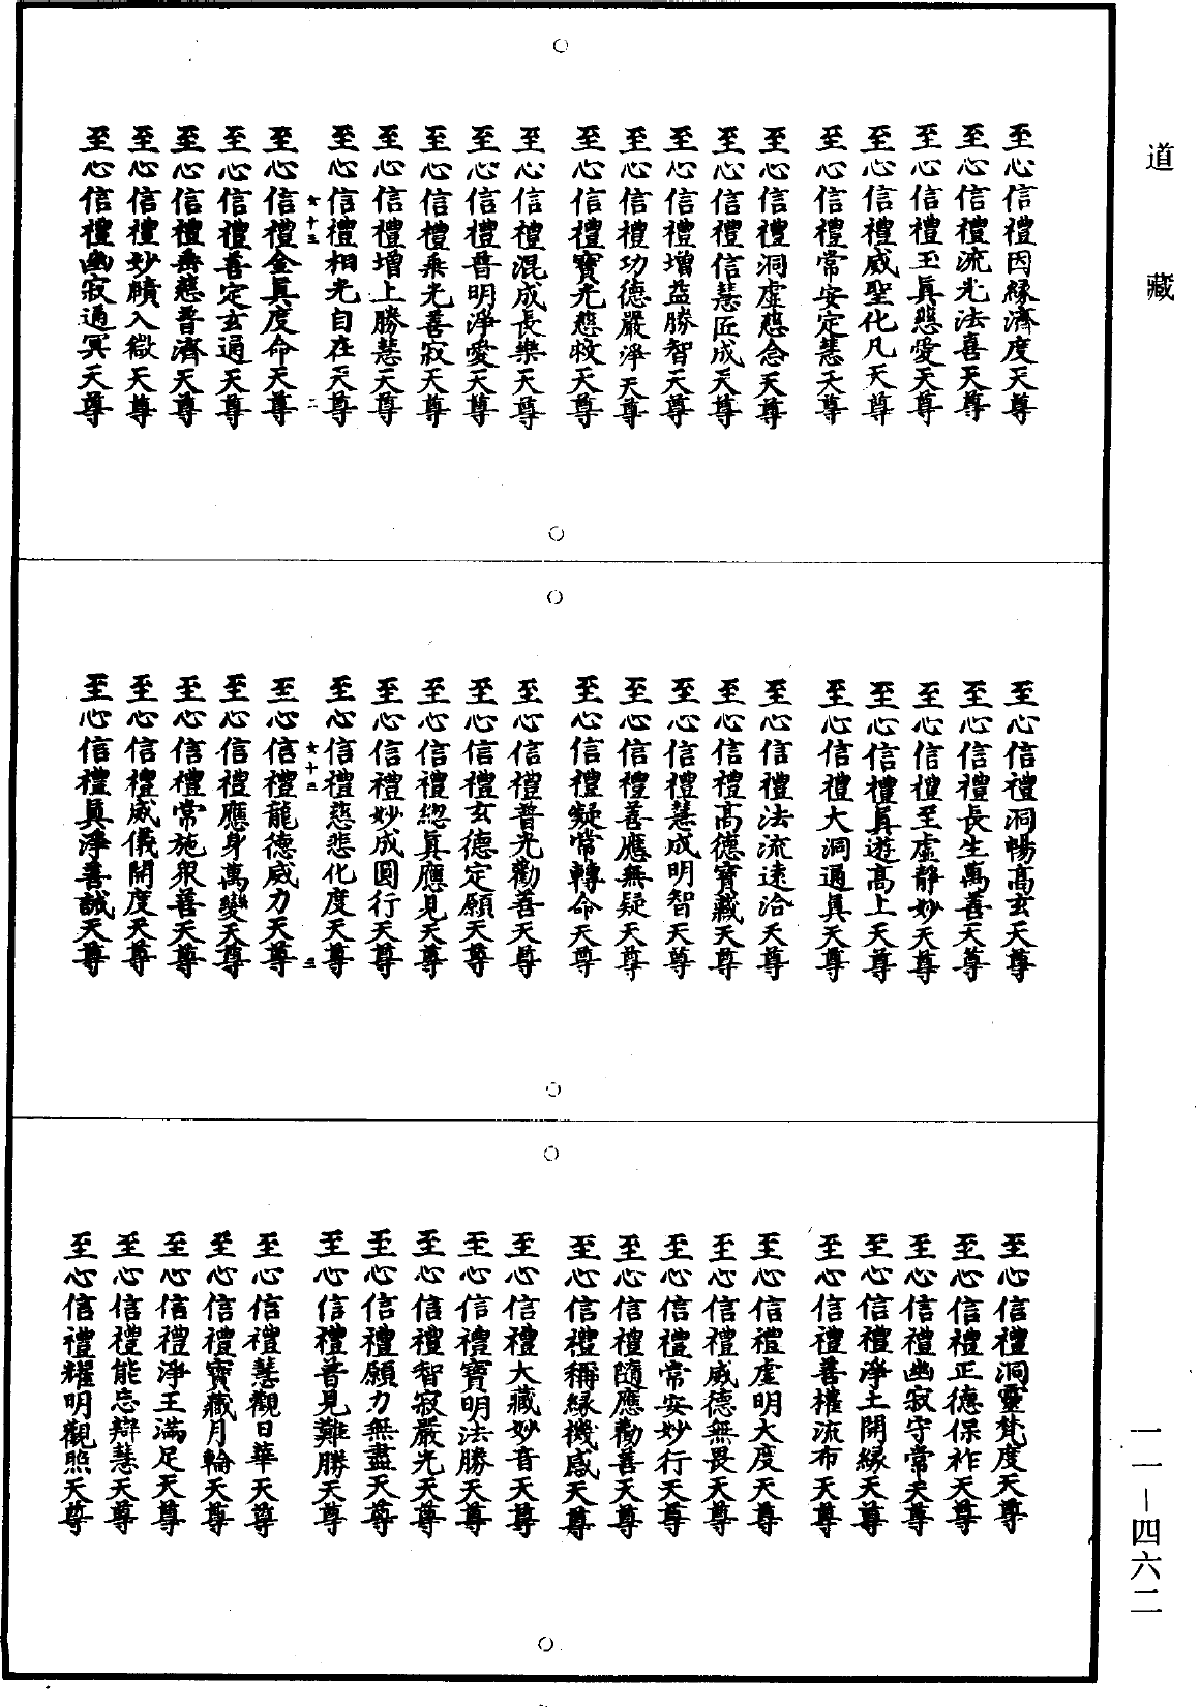 道藏
至心信禮因緣濟度天尊
至心信禮流光法喜天尊
至心信禮玉眞悲愛天尊
至心信禮威聖化凡天尊
至心信禮常安定慧天尊
至心信禮洞虛慈念天尊
至心信禮信慧匠成天尊
至心信禮增益勝智天尊
至心信禮功德嚴淨天尊
至心信禮寶光慈救天尊
至心信禮混成長樂天尊
至心信禮普明淨愛天尊
至心信禮乘光善寂天尊
至心信禮增上勝慧天尊
至心信禮相光自在天尊
女十三 二
至心信禮金眞度命天尊
至心信禮善定玄通天尊
至心信禮乘慈普濟天尊
至心信禮妙賾入微天尊
至心信禮幽寂通冥天尊
至心信禮洞暢高玄天尊
至心信禮長生萬善天尊
至心信禮至虛靜妙天尊
至心信禮眞遊高上天尊
至心信禮大洞通眞天尊
至心信禮法流遠洽天尊
至心信禮高德寶藏天尊
至心信禮慧成明智天尊
至心信禮善應無疑天尊
至心信禮凝常轉命天尊
至心信禮普光勸善天尊
至心信禮玄德定願天尊
至心信禮總眞應見天尊
至心信禮妙成圓行天尊
至心信禮慈悲化度天尊
女十三 三
至心信禮龍德威力天尊
至心信禮應身萬變天尊
至心信禮常施眾善天尊
至心信禮威儀開度天尊
至心信禮眞淨善誠天尊
至心信禮洞靈梵度天尊
至心信禮正德保祚天尊
至心信禮幽寂守常天尊
至心信禮淨土開緣天尊
至心信禮善權流布天尊
至心信禮虛明大度天尊
至心信禮威德無畏天尊
至心信禮常安妙行天尊
至心信禮隨應勸善天尊
至心信禮稱緣機感天尊
至心信禮大藏妙音天尊
至心信禮寶明法勝天尊
至心信禮智寂嚴光天尊
至心信禮願力無盡天尊
至心信禮普見難勝天尊
至心信禮慧觀日華天尊
至心信禮寶藏月輪天尊
至心信禮淨王滿足天尊
至心信禮能忘辯慧天尊
至心信禮耀明觀照天尊
一一－四六二